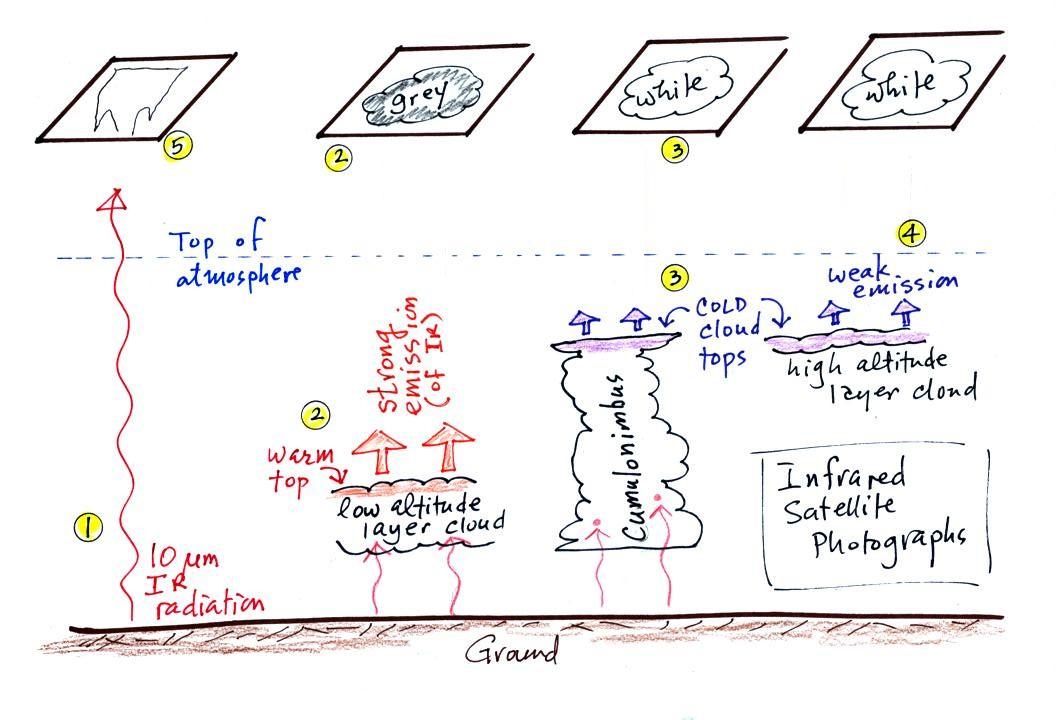 5
grey
2
white
3
white
4
Top of
atmosphere
3
weak
emission
COLD
cloud
tops
strong
emission
(of IR)
high altitude
layer cloud
2
warm
top
low altitude
layer cloud
Cumulonimbus
Infrared
Satellite
Photographs
1
10 µm
IR
radiation
Ground